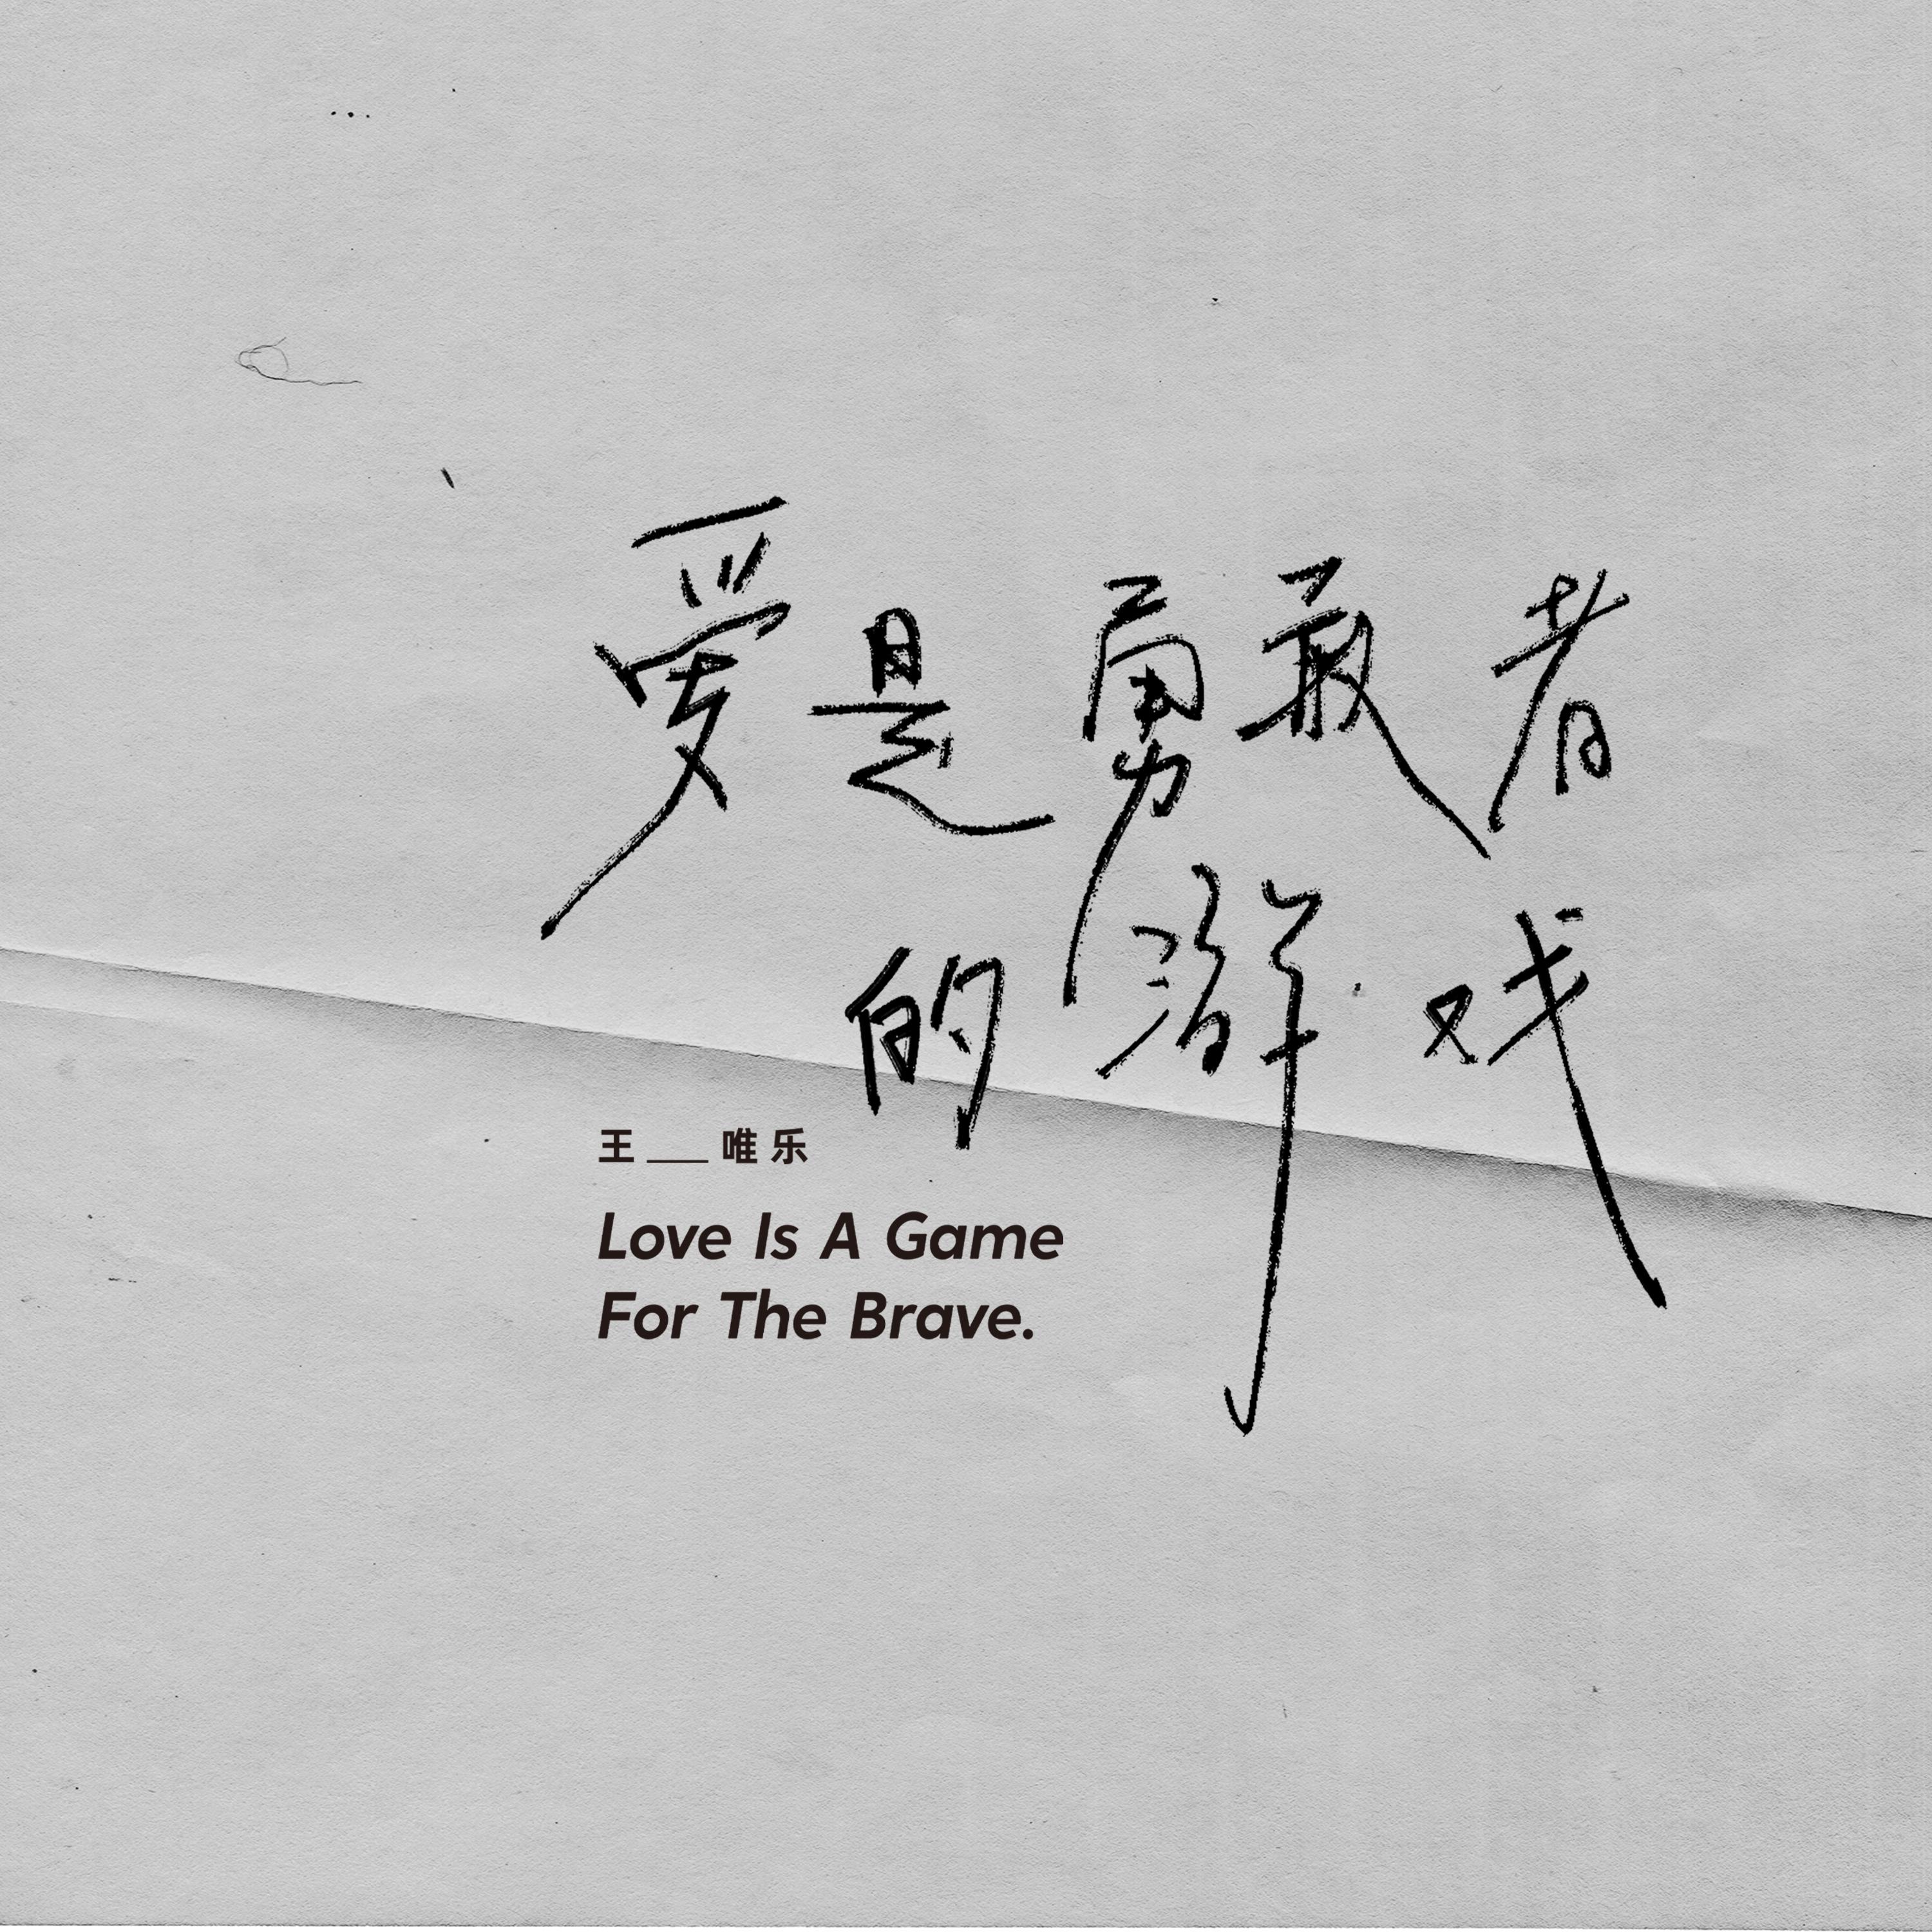 爱是勇敢者
的游戏
王__唯乐
Love Is A Game
For The Brave.